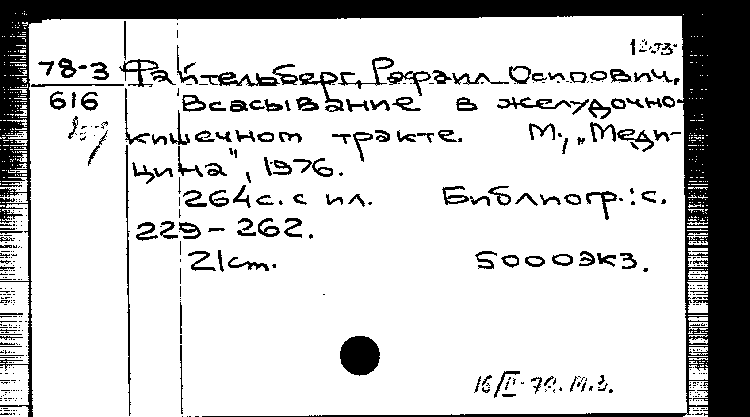 78-3 Файтельберг, Рафаил Осипович.
616 Всасывание в желудочно-
кишечном тракте. М., „Меди-
цина", 1976.
264 с. с ил. Библиогр.: с.
229-262.
21 cm. 5000экз.